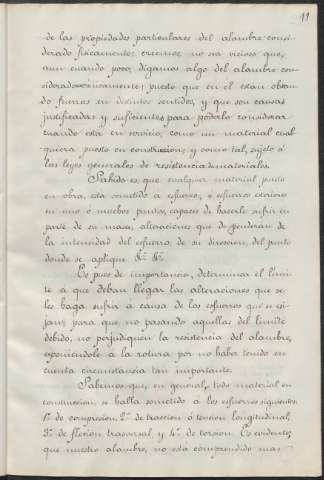 11
de las propiedades particulares del alambre consi-
derado fisicamente: creemos no sea vicioso que,
aun cuando poco, digamos algo del alambre con-
siderado mecanicamente; puesto que en el estan obran-
do fuerzas en distintos sentidos, y que son causas
justificadas y suficientes para poderlo considerar
cuando esta en servicio, como un material cual
quiera puesto en construccion y como tal, sujeto á
las leyes generales de resistencia de materiales.
Sabido es, que cualquier material puesto
en obra, esta sometido a esfuerzos, ó esfuerzos exteriores
en uno ó muchos puntos, capaces de hacerle sufrir en
parte de su masa, alteraciones que dependerán de
la intensidad del esfuerzo, de su direccion, del punto
donde se aplique &ª &ª.
Es pues de importancia, determinar el lími-
te á que deban llegar las alteraciones que se
les haga sufrir á causa de los esfuerzos que se exi-
jan; para que, no pasando aquellas del limite
debido, no perjudiquen la resistencia del alambre,
exponiendole á la rotura por no haber tenido en
cuenta circunstancia tan importante.
Sabemos que, en general, todo material en
construccion, se halla sometido á los esfuerzos siguientes:
1º de compresion, 2º de traccion ó tension longitudinal,
3º de flexion trasversal y 4º de torsion. Es evidente,
que nuestro alambre, no está comprendido mas